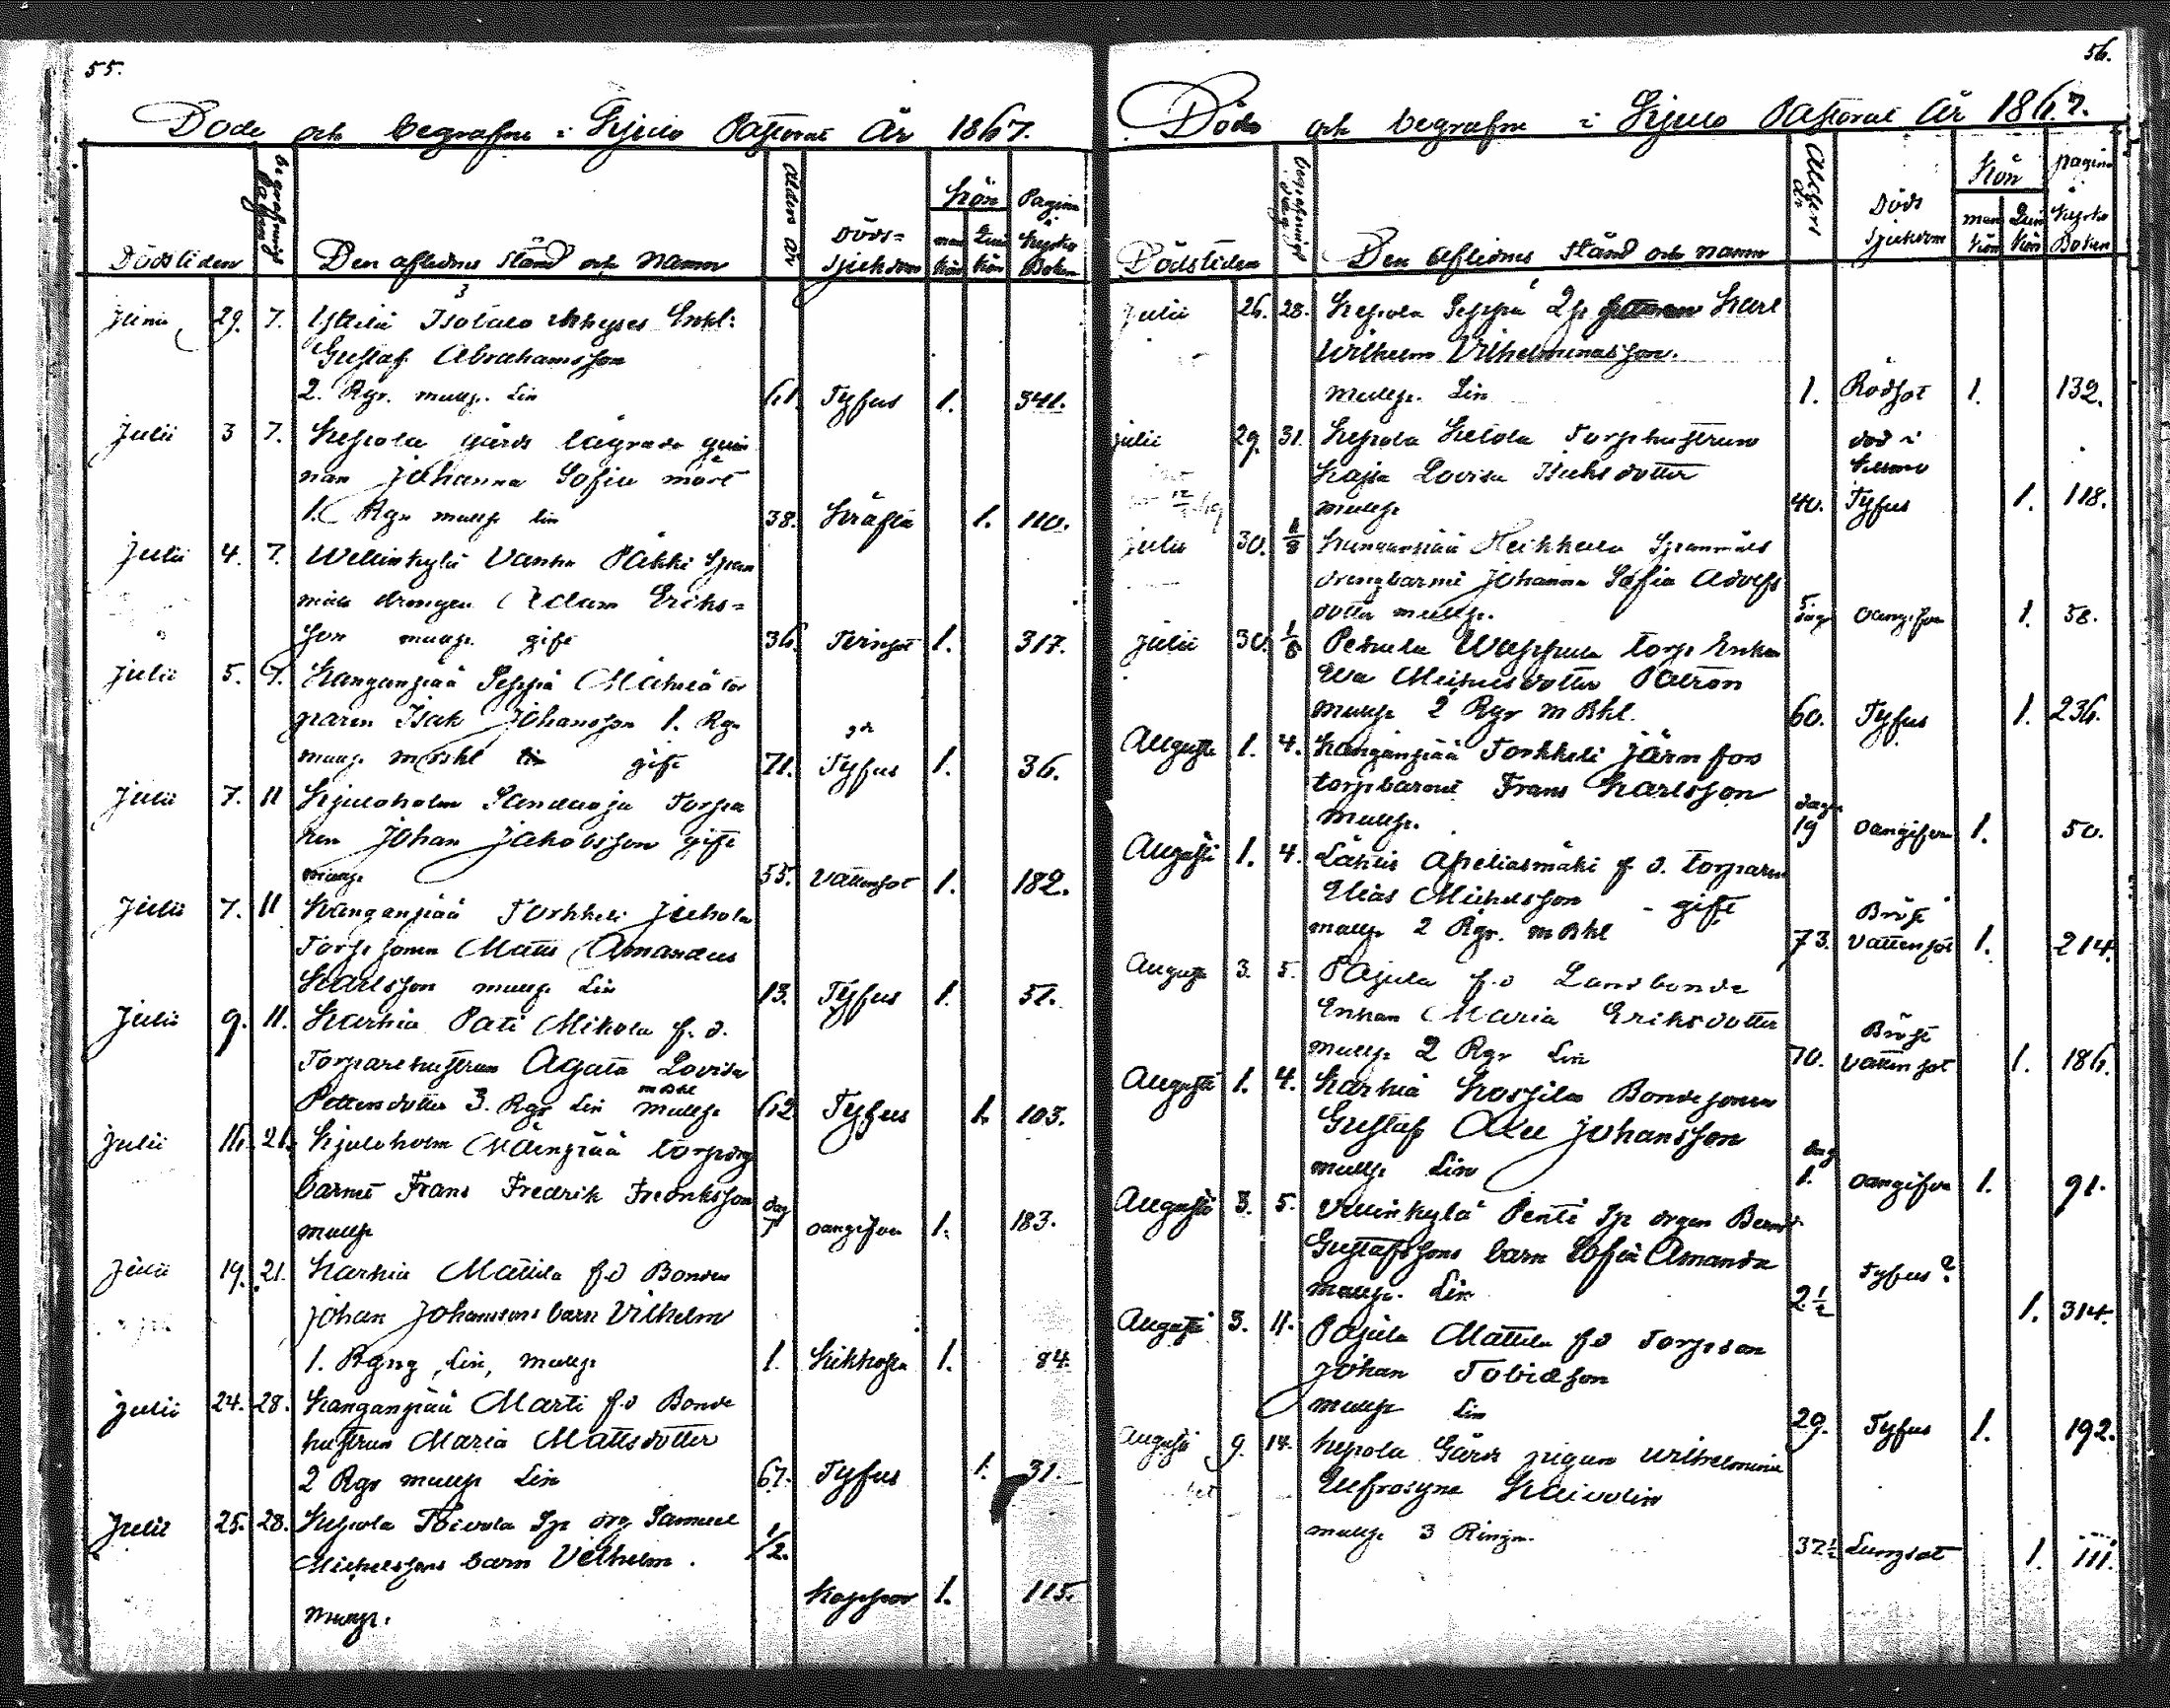 55.
Döde och begrafne i Kjulo Pastorat År 1867.
Dödstiden
begrafnings dagen
Den aflednes Stånd och Namn
Ålder År
Döds=
Sjukdom
Kön
man kön
Quin kön
Pagina i Kyrko Boken
Junii 29. 7.
Gustaf Abrahamsson
2. Rgr. mullp. Lin 61. Tyfus 1. 341.
Julii 3 7. Kepola gårds lägrade quin
nan Johanna Sofia
1. Rgr mullp Lin 38. Kräfta 1. 110.
Julii 4. 7. Wellinkylä Vanha Päkki Span
måls drengen Adam Eriks=
son mullp. gift 36. 1. 317.
Julii 5. 7. Kanganpää Seppä Mäkilä tor
paren Isak Johansson 1. Rgr
mullp m Bkl gift 71. Tyfus 1. 36.
Julii 7. 11 Kjuloholm Torpa
ren Johan Jakobsson gift
mullp 55. Vattensot 1. 182.
Julii 7. 11 Kanganpää Torkkeli Juhola
Torp sonen Matts Amandus
Karlsson mullp Lin 13. Tyfus 1. 51.
Julii 9. 11. Karhia Pati Mikola f. d.
Torparehustrun Agata Lovisa
m Bkl
Pettersdotter 3. Rgr Lin mullp 62 Tyfus 1. 103.
Julii 16. 21. Kjuloholm torpdrg
barnet Frans Fredrik Fredriksson
mullp dag 7 oangifven 1. 183.
Julii 19. 21. Karhia Mattila f.d Bonden
Johan Johanssons barn Vilhelm
1. Rgng, Lin, mullp 1. Kikhosta 1. 84.
Julii 24. 28. Kanganpää Marti f.d Bonde
hustrun Maria Mattsdotter
2 Rgr mullp Lin 67. Tyfus 1. 31.
Julii 25. 28. Kepola Toivola Sp drg Samuel
Michelssons barn Vilhelm. 1/2.
mullp. Koppor 1. 115.
56.
Döde och begrafne i Kjulo Pastorat År 1867.
Dödstiden
Begrafnings dag
Den Aflidnes Stånd och namn
Ålder
år
Döds
Sjukdom
Kön
man kön
Quin kön
pagina i Kyrko Boken
Julii 26. 28. Kepola Seppä Karl
Wilhelm Vilhelminasson.
mullp. Lin 1. Rödsot 1. 132.
julii 29. 31. Kepola Ketola Torphustrun
Kajsa Lovisa Isaksdotter
död i
mullp 40. Tyfus 1. 118.
julii 30. 1/8 Kanganpää Heikkilä Spanmåls
drengbarnet Johanna Sofia Adolfs
dotter mullp. 5 dagr oangifven 1. 58.
julii 30. 1/8 Petula Wappula torp Enkan
Eva Michelsdotter Patron
mullp 2 Rgr m Bkl. 60. Tyfus 1. 236.
Augusti 1. 4. Kanganpää Torkkeli Järnfors
torpbarnet Frans Karlsson
mullp. dagar 19 oangifven 1. 50.
Augusti 1. 4. Lähtis Apeliasmäki f. d. torparen
Elias Michelsson - gift
mullp 2 Rgr. m Bkl 73. Bröst vattensot 1. 214.
Augusti 3. 5. Pajula f.d Landbonde
Enkan Maria Eriksdotter
mullp 2 Rgr Lin 70. Bröst vattensot 1. 186.
Augusti 1. 4. Karhia Kossila Bondesonen
Gustaf Johansson
mullp Lin dag 1. oangifven 1. 91.
Augusti 3. 5. Vellinkylä Penti Sp drgen
Gustafssons barn Sofia Amanda
mullp. Lin 2 1/2 Tyfus? 1. 314.
Augusti 3. 11. Pajula Mattila f.d Torpson
Johan Tobidson
mullp Lin 29. Tyfus 1. 192.
Augusti 9. 14. Kepola Gårds pigan Wilhelmina
Eufrosyne Kaivolin
mullp 3 Ringn. 37 1/2 Lungsot 1. 111.